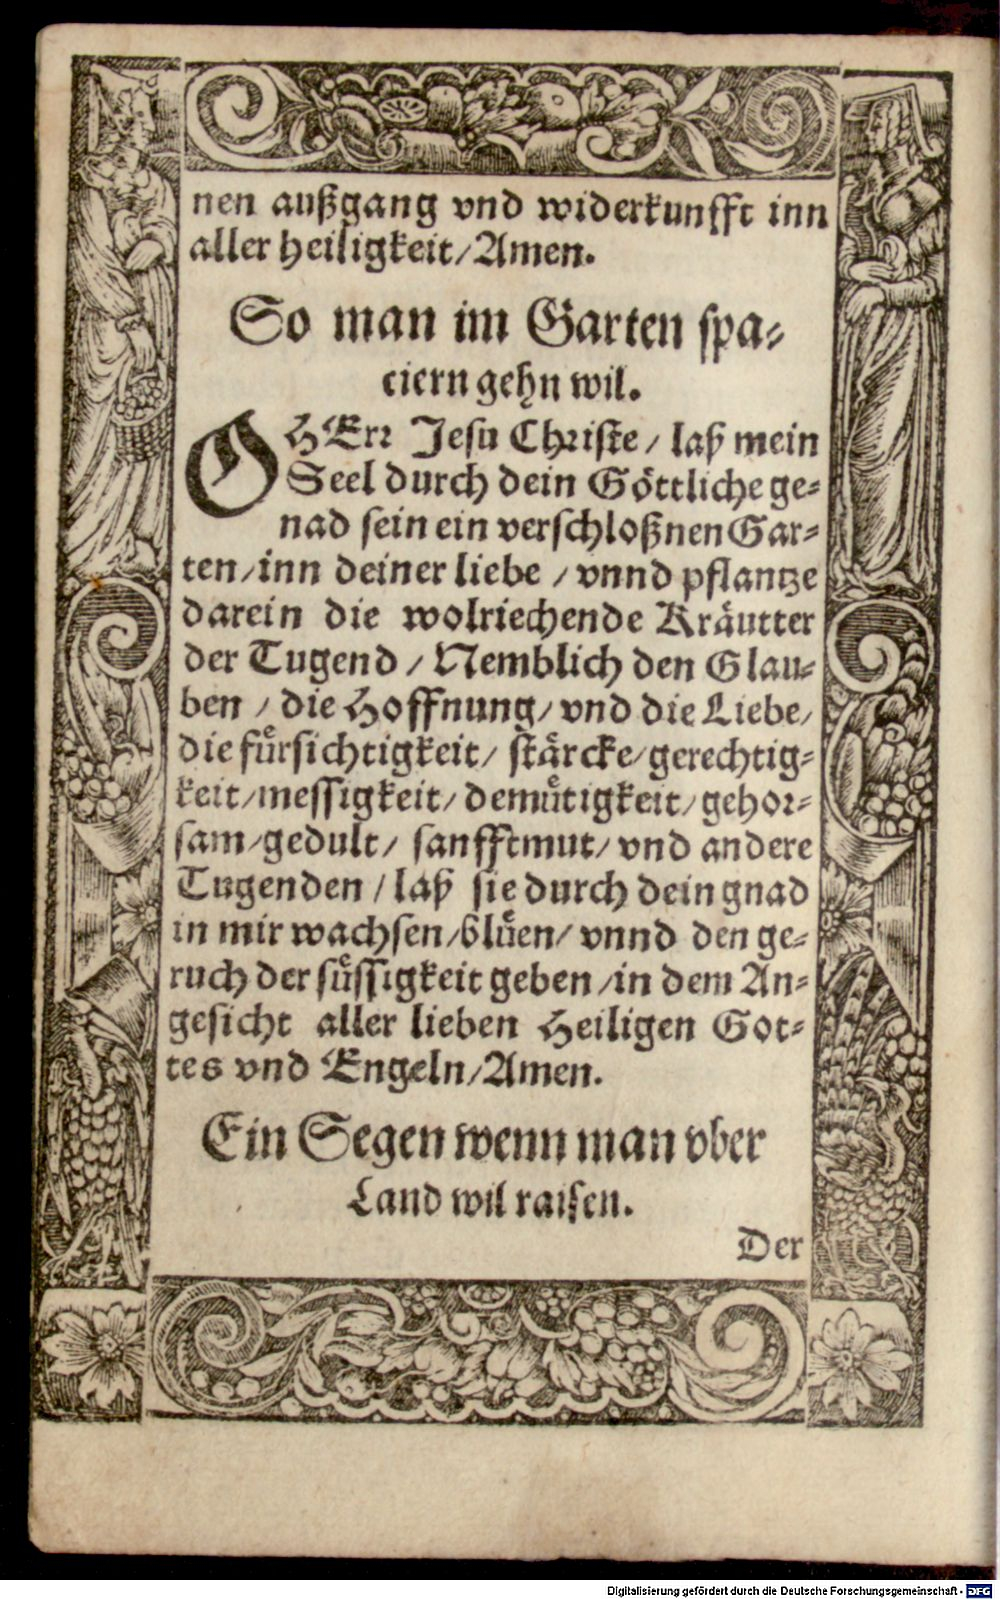 nen außgang vnd widerkunfft inn
aller heiligkeit/Amen.
So man im Garten spa⸗
ciern gehn wil.
O HErr Jesu Christe / laß mein
Seel durch dein Göttliche ge⸗
nad sein ein verschloßnen Gar⸗
ten/inn deiner liebe / vnnd pflantze
darein die wolriechende Kräutter
der Tugend / Nemblich den Glau⸗
ben / die Hoffnung/ vnd die Liebe/
die fuͤrsichtigkeit/ stärcke/gerechtig⸗
keit/messigkeit/ demuͤtigkeit/gehor⸗
sam/gedult/ sanfftmut/ vnd andere
Tugenden / laß sie durch dein gnad
in mir wachsen/bluͤen/ vnnd den ge⸗
ruch der suͤssigkeit geben/in dem An⸗
gesicht aller lieben Heiligen Got⸗
tes vnd Engeln/Amen.
Ein Segen wenn man vber
Land wil raisen.
Der
Digitalisierung gefördert durch die Deutsche Forschungsgemeinschaft - DFG